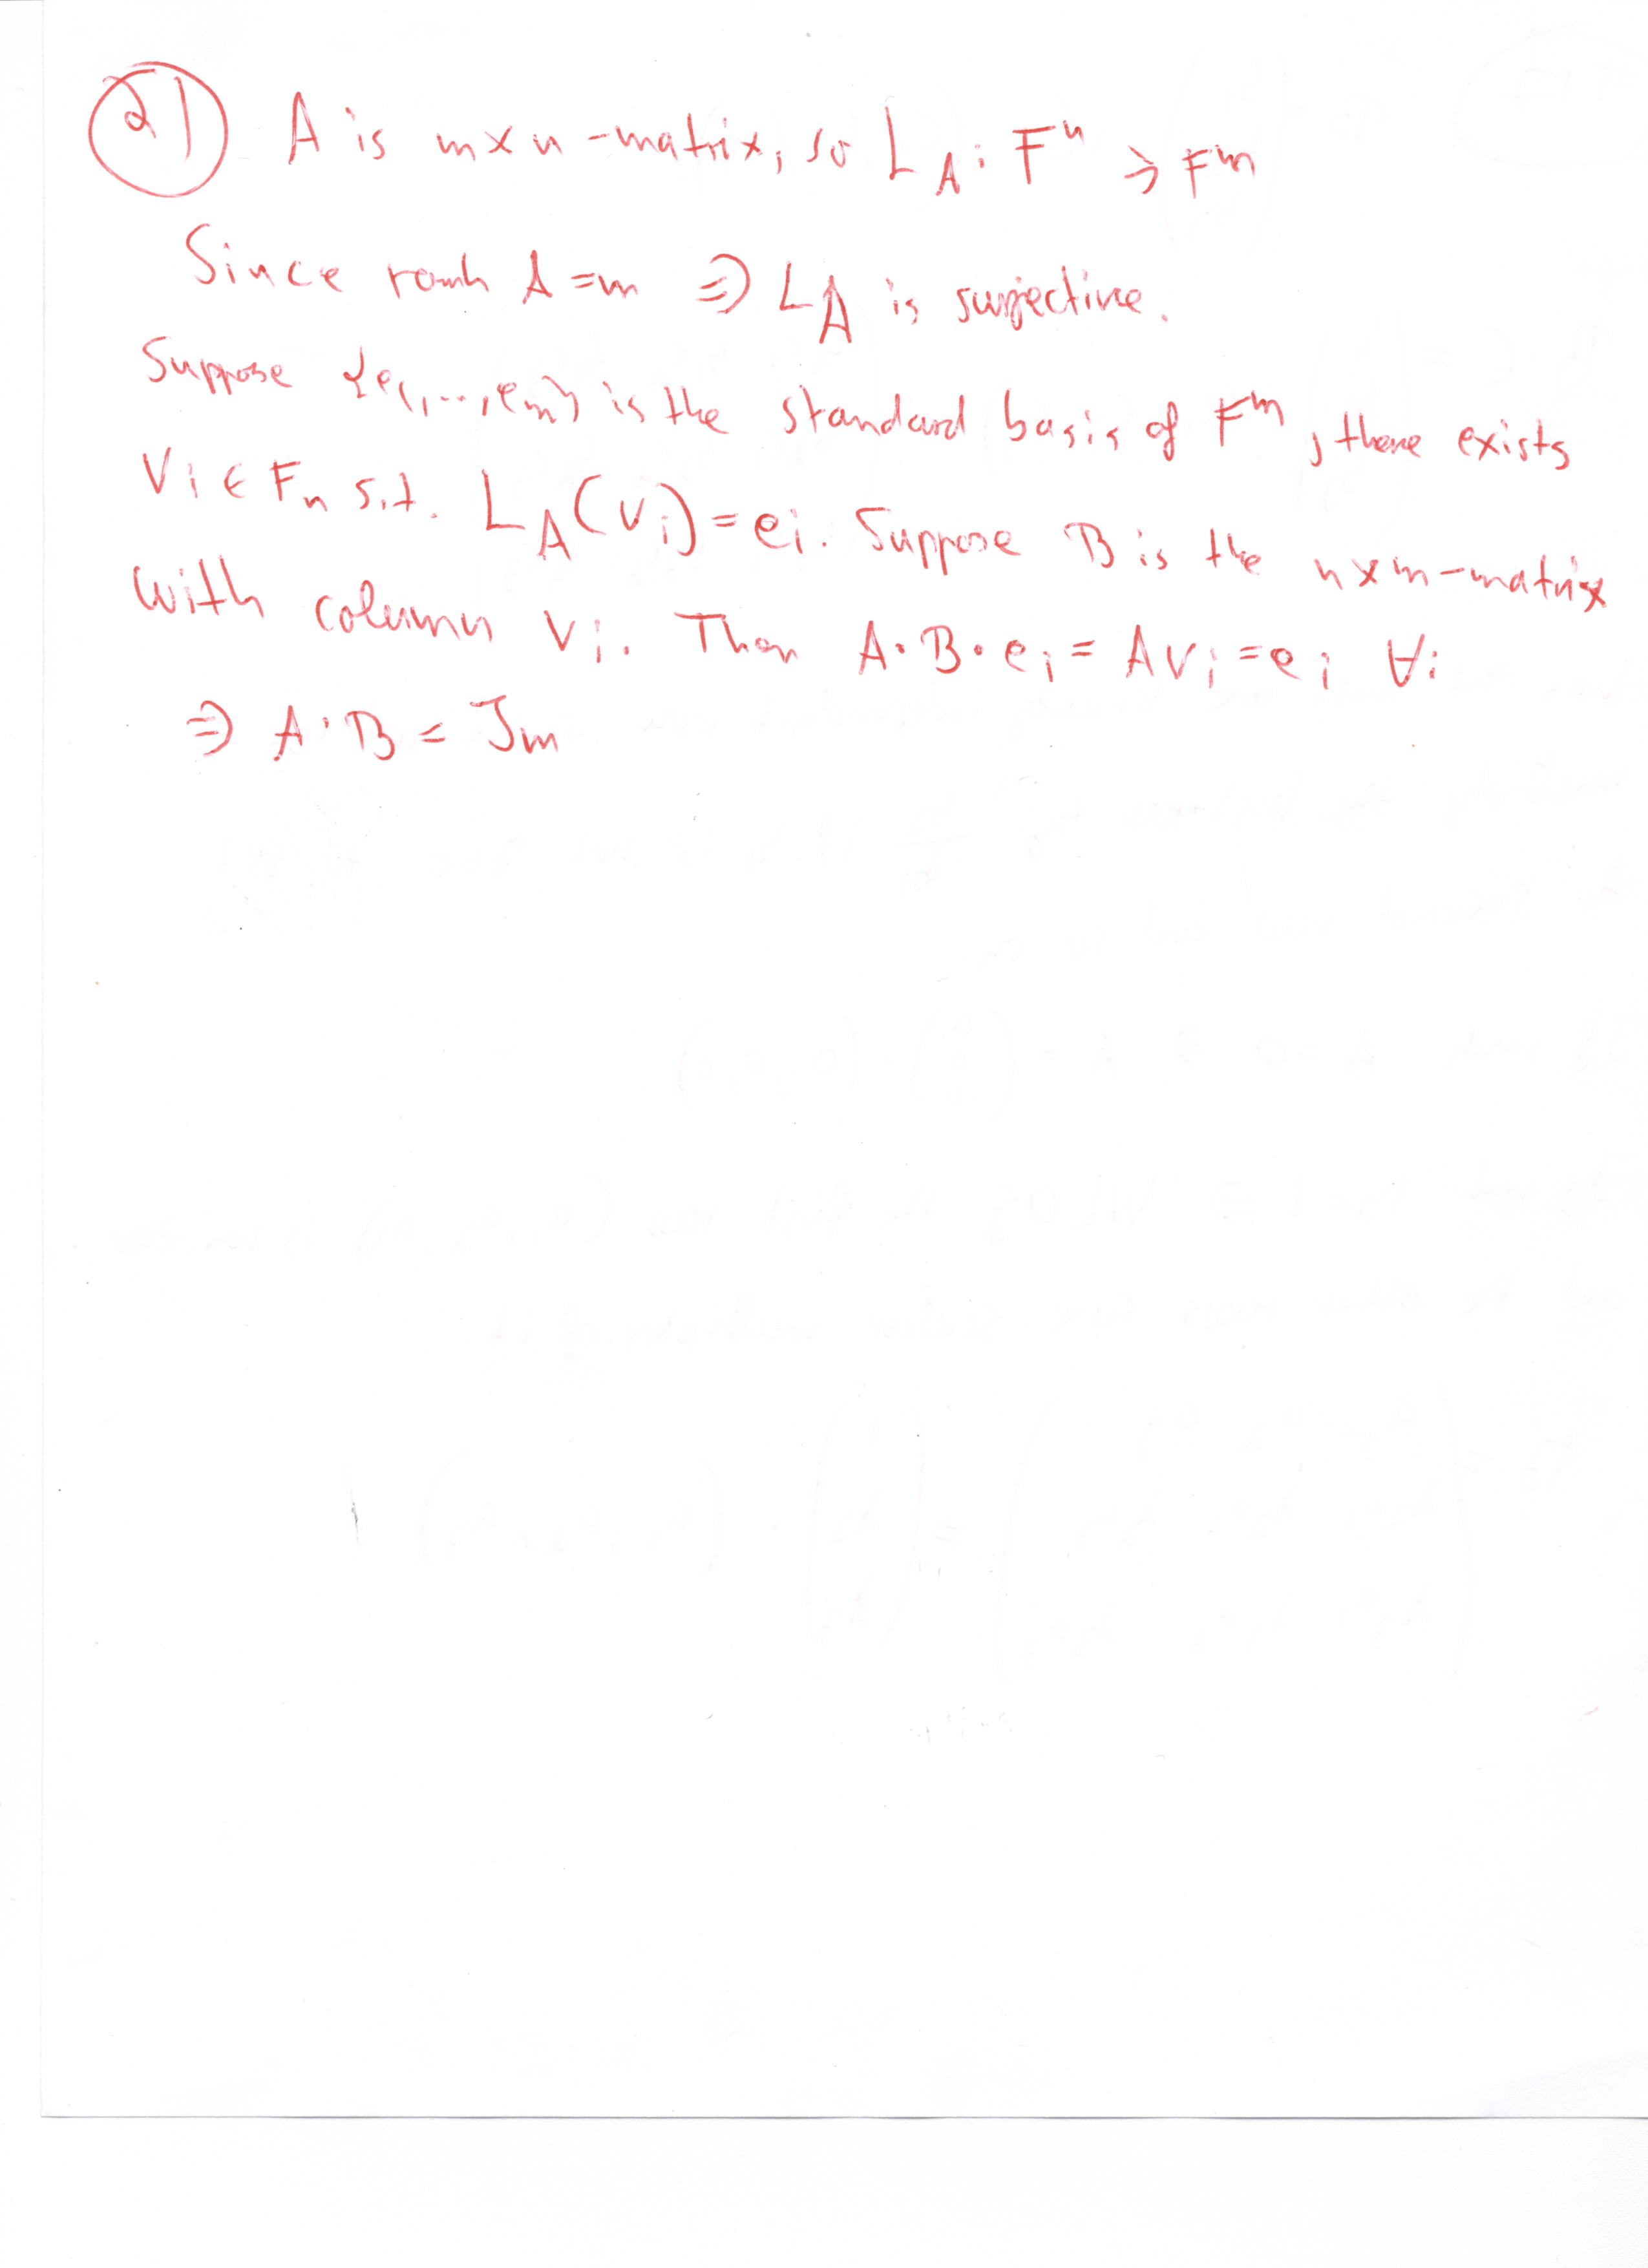 21) A is m×n-matrix, so L_A: F^n → F^m
Since rank A=m ⇒ L_A is surjective.
Suppose {e_1,...,e_m} is the standard basis of F^m, there exists
v_i ∈ F_n s.t. L_A(v_i)=e_i. Suppose B is the n×m-matrix
with column v_i. Then A·B·e_i = Av_i = e_i ∀i
⇒ A·B = I_m